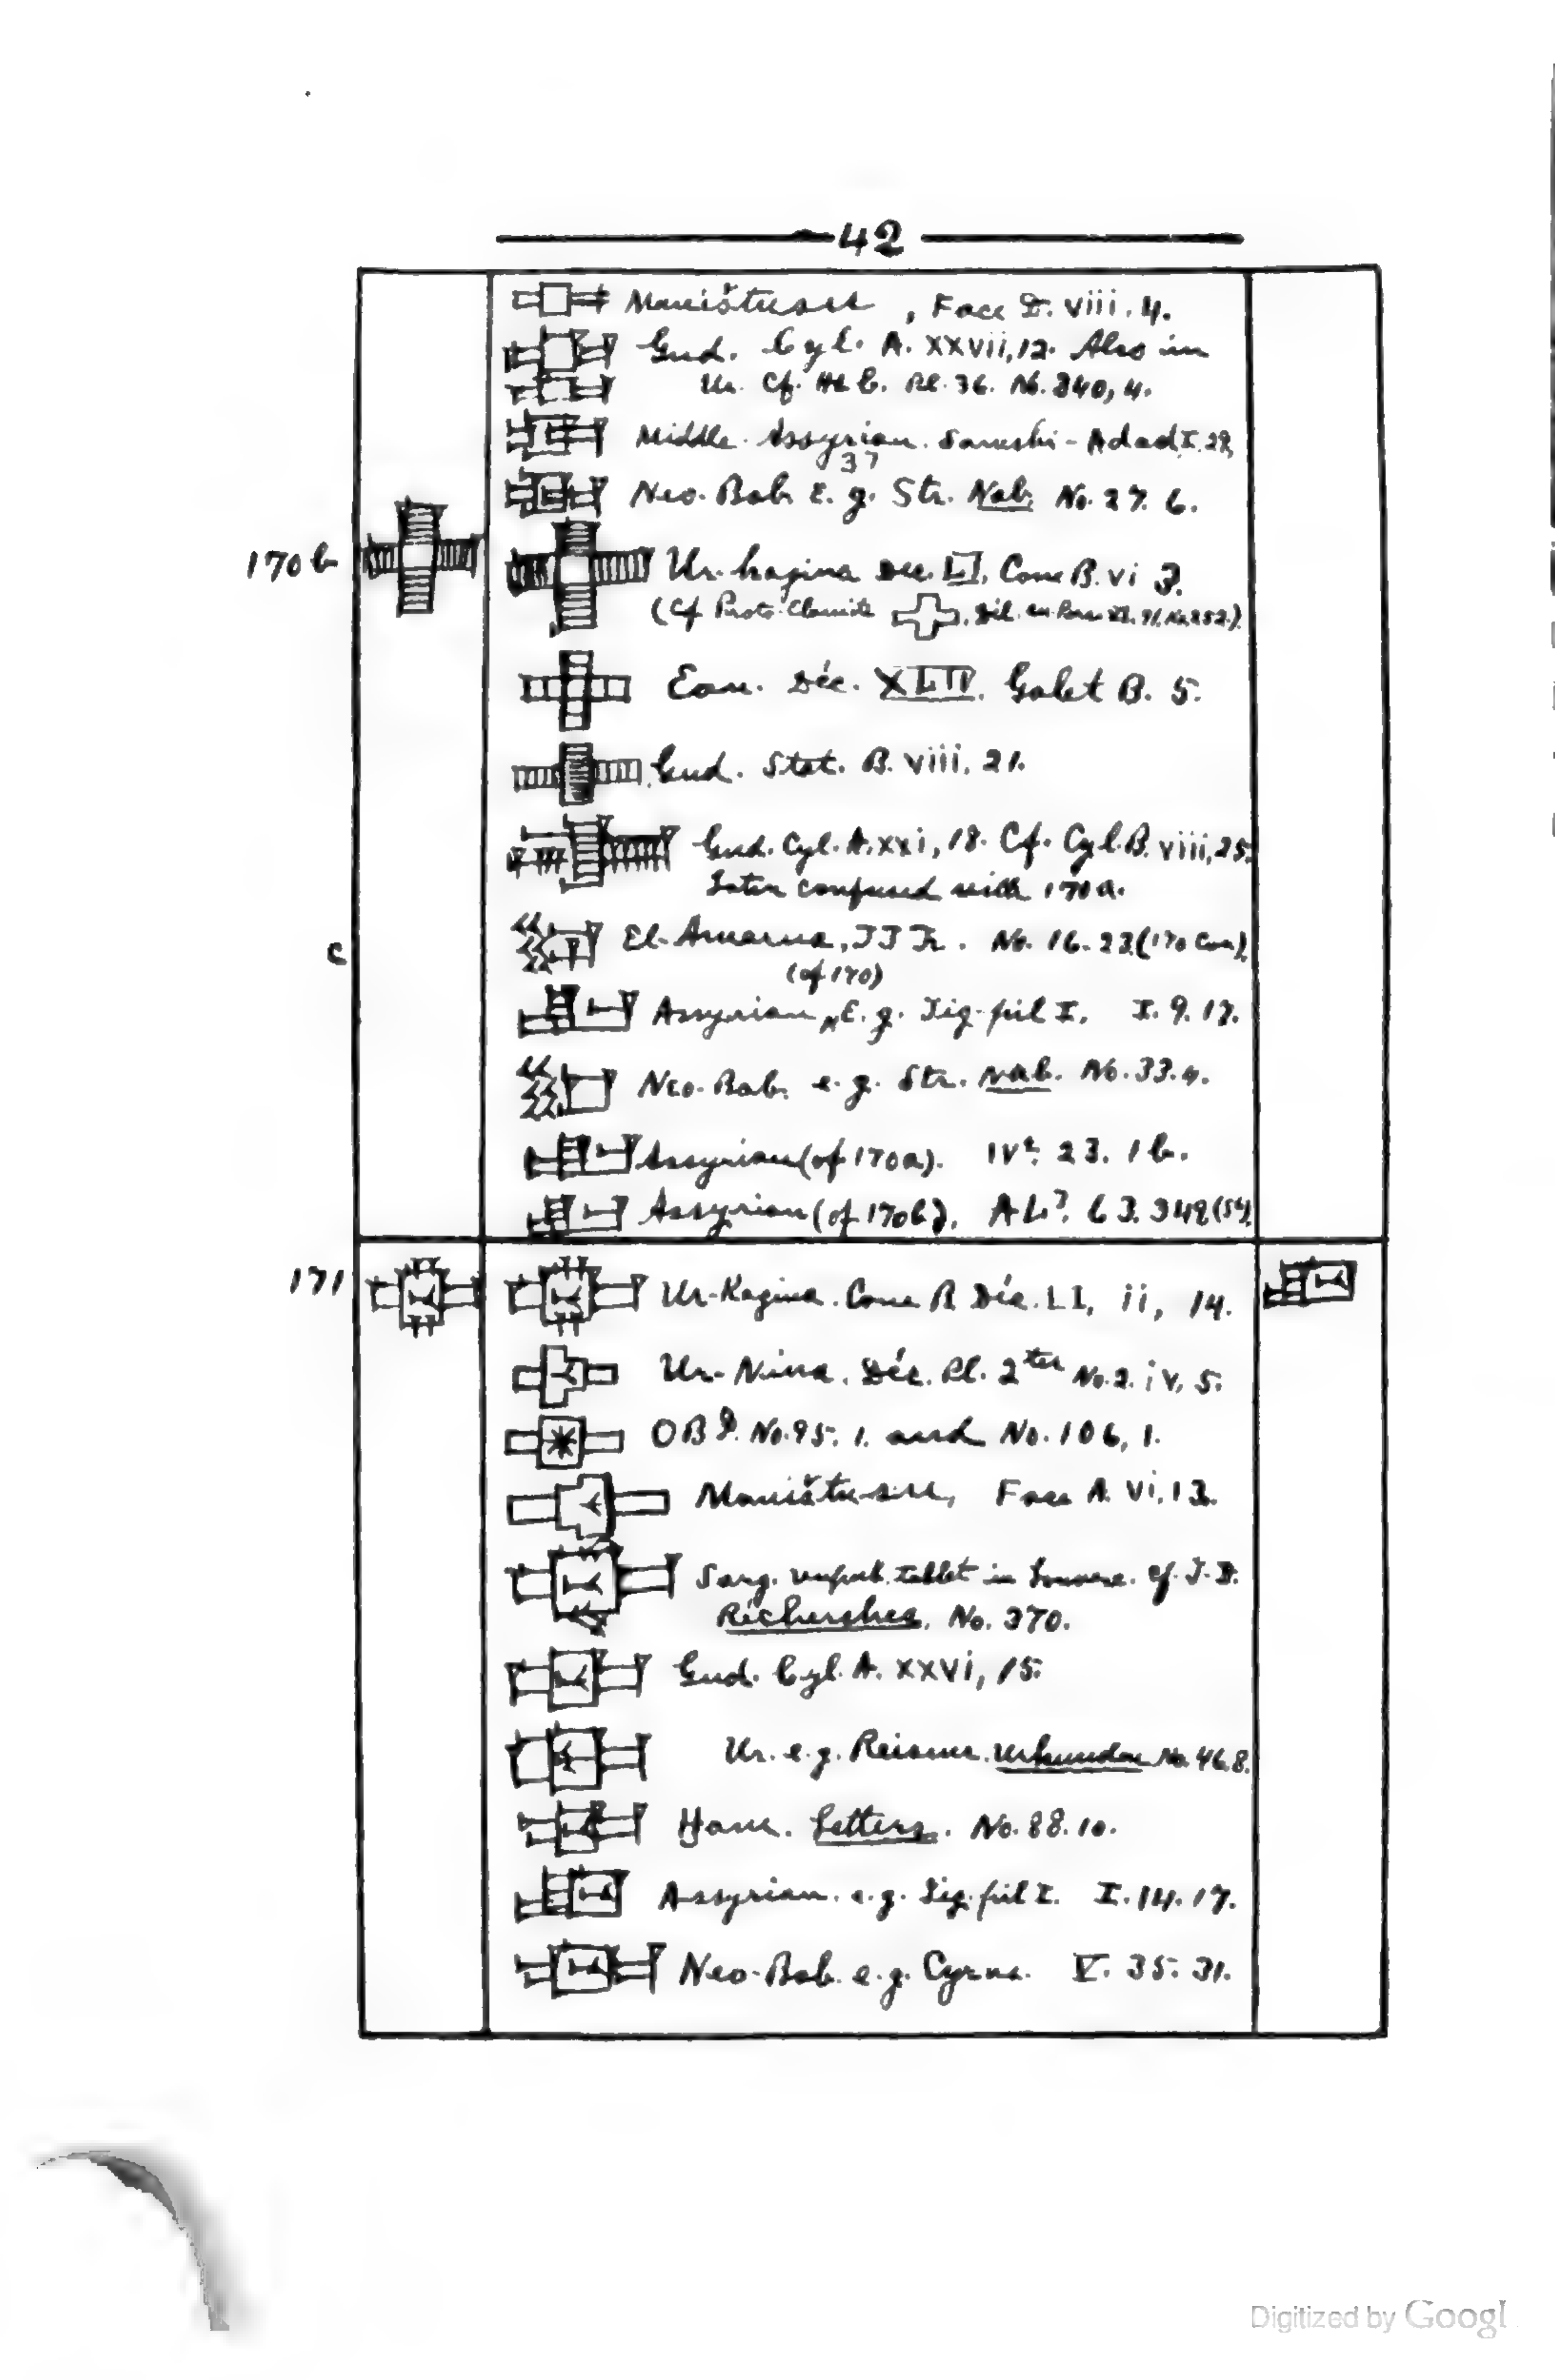 42
Maništusu , Face D. viii. 4.
Gud. Cyl. A. xxvii, 12. Also in
Ur. Cf. Pl. 36. No. 340, 4.
Middle Assyrian. Samshi-Adad I. 29,
37
Neo-Bab. E. g. Str. Nab. No. 27. 6.
170b Ur-kagina Dec. LI. Cone B. vi 3.
(Cf Proto-Elamite No. 352.)
Ean. Déc. XLIV. Galet B. 5.
Gud. Stat. B. viii, 21.
Gud. Cyl. A. xxi, 18. Cf. Cyl. B. viii, 25.
Later confused with 170a.
c El-Amarna, No. 16. 23.
(of 170)
Assyrian E. g. Tig-pil I. I. 9. 17.
Neo-Bab. e. g. Str. Nab. No. 33. 4.
Assyrian (of 170a). IV². 23. 1b.
Assyrian (of 170b). AL³. 63. 342
171 Ur-Kagina. Cone B Déc. LI, ii, 14.
Ur-Nina. Déc. Pl. 2ter No. 2. iv, 5.
OBI. No. 95. 1. and No. 106, 1.
Maništu-su, Face A. vi. 13.
Sarg. unpub. tablet in Louvre. cf. T-D.
Récherches. No. 370.
Gud. Cyl. A. xxvi, 15.
Ur. e. g. Reisner. Urkunden No. 46. 8.
Ham. Letters. No. 88. 10.
Assyrian. e. g. Tig-pil I. I. 14. 17.
Neo-Bab. e. g. Cyrus. V. 35. 31.
Digitized by Googl